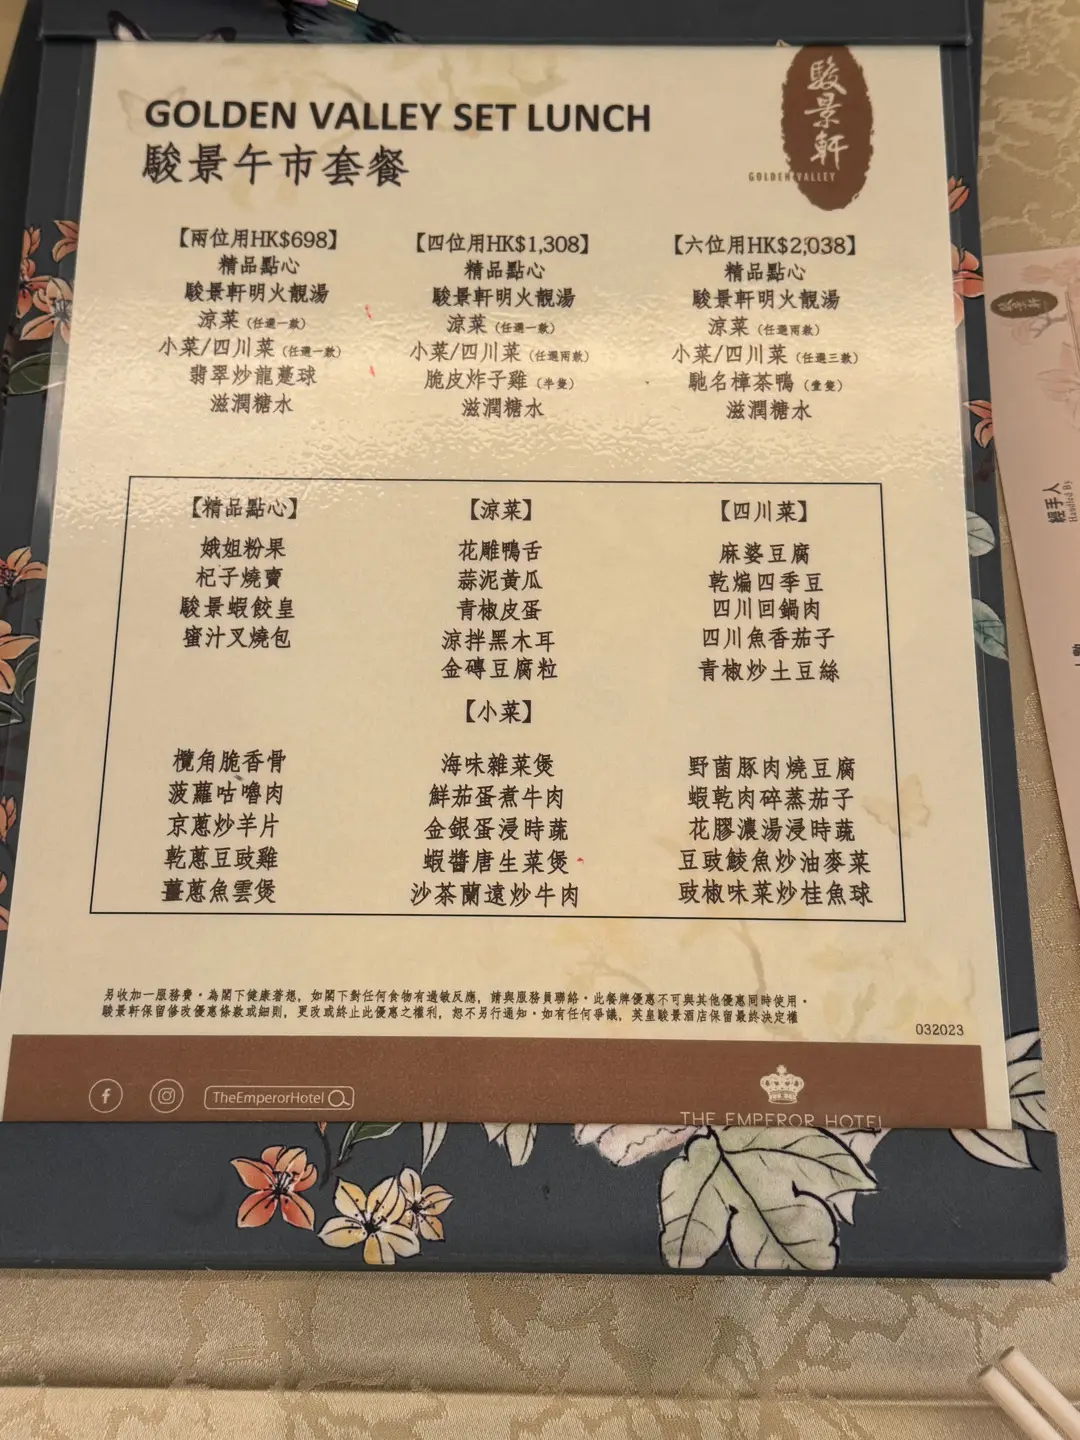 GOLDEN VALLEY SET LUNCH
駿景午市套餐
駿景軒
GOLDEN VALLEY
【兩位用HK$698】
精品點心
駿景軒明火靚湯
涼菜 (任選一款)
小菜/四川菜 (任選一款)
翡翠炒龍躉球
滋潤糖水
【四位用HK$1,308】
精品點心
駿景軒明火靚湯
涼菜 (任選一款)
小菜/四川菜 (任選兩款)
脆皮炸子雞 (半隻)
滋潤糖水
【六位用HK$2,038】
精品點心
駿景軒明火靚湯
涼菜 (任選兩款)
小菜/四川菜 (任選三款)
馳名樟茶鴨 (壹隻)
滋潤糖水
【精品點心】
娥姐粉果
杞子燒賣
駿景蝦餃皇
蜜汁叉燒包
【涼菜】
花雕鴨舌
蒜泥黃瓜
青椒皮蛋
涼拌黑木耳
金磚豆腐粒
【四川菜】
麻婆豆腐
乾煸四季豆
四川回鍋肉
四川魚香茄子
青椒炒土豆絲
【小菜】
欖角脆香骨
菠蘿咕嚕肉
京蔥炒羊片
乾蔥豆豉雞
薑蔥魚雲煲
海味雜菜煲
鮮茄蛋煮牛肉
金銀蛋浸時蔬
蝦醬唐生菜煲
沙茶蘭遠炒牛肉
野菌豚肉燒豆腐
蝦乾肉碎蒸茄子
花膠濃湯浸時蔬
豆豉鯪魚炒油麥菜
豉椒味菜炒桂魚球
另收加一服務費。為閣下健康著想，如閣下對任何食物有過敏反應，請與服務員聯絡。此餐牌優惠不可與其他優惠同時使用。
駿景軒保留修改優惠條款或細則，更改或終止此優惠之權利，恕不另行通知。如有任何爭議，英皇駿景酒店保留最終決定權
032023
TheEmperorHotel
THE EMPEROR HOTEL
駿景軒
經手人
Handled By